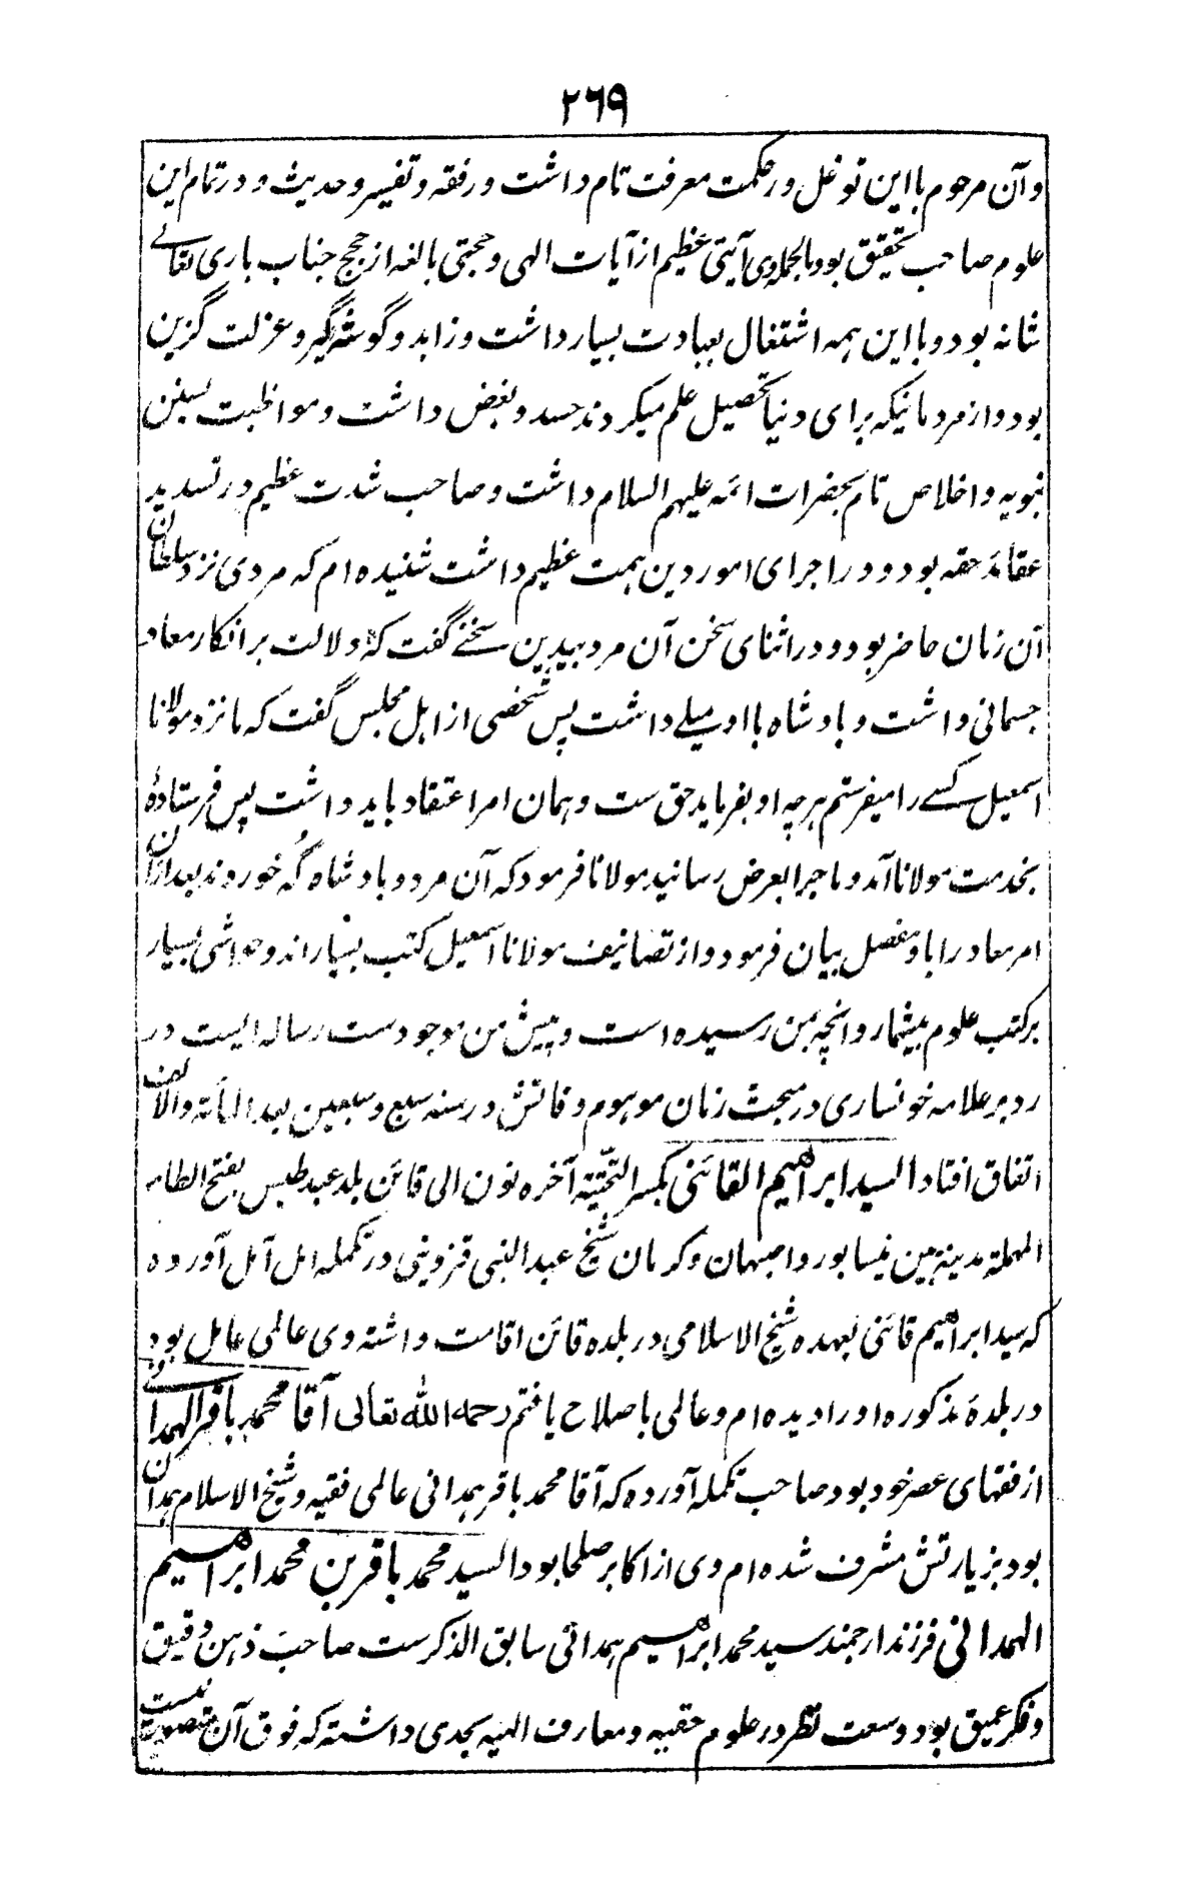 ۲۶۹
و آن مرحوم با این توغل در حکمت معرفت تام داشت و رفقه و تفسیر و حدیث و در تمام این
علوم صاحب تحقیق بود بالجمله وی آیتی عظیم از آیات الهی و حجتی بالغه از حجج جناب باری تعالے
شانه بود و با این همه اشتغال بعبادت بسیار داشت و زاهد و گوشه گیر و عزلت گزین
بود و از مردمانیکه برای دنیا تحصیل علم میکردند حسد و بغض داشت و مواظبت بسنن
نبویه و اخلاص تام بحضرات ائمه علیهم السلام داشت و صاحب شدت عظیم در تسدید
عقائد حقه بود و در اجرای امور دین همت عظیم داشت شنیده ام که مردی نزد سلطان
آن زمان حاضر بود و در اثنای سخن آن مرد بیدین سخنے گفت که دلالت بر انکار معاد
جسمانی داشت و بادشاه با او میلے داشت پس شخصی از اهل مجلس گفت که ما نزد مولانا
اسمعیل کسے را میفرستم هرچه او بفرماید حق ست و همان امر اعتقاد باید داشت پس فرستادهٔ
بخدمت مولانا آمد و ماجرا بعرض رسانید مولانا فرمود که آن مرد و بادشاه گُه خوردند بعد ازان
امر معاد را با و مفصل بیان فرمود و از تصانیف مولانا اسمعیل کتب بسیار اند و حواشی بسیار
بر کتب علوم بیشمار و انچه بمن رسیده است و پیش من موجود ست رساله ایست در
رد بر علامه خونساری در مبحث زمان موهوم و فاتش در سنه سبع و سبعین بعد المأته والالف
اتفاق افتاد السید ابراهیم القائنی بکسر التحتیّة آخره نون الی قائن بلد عبد طبس بفتح الطاء
المهملة مدینة بین نیسابور و اصبهان و کرمان شیخ عبد النبی قزوینی در تکمله امل آمل آورده
که سید ابراهیم قائنی بعهده شیخ الاسلامی در بلده قائن اقامت داشته وی عالمی عامل بود
در بلدهٔ مذکوره او را دیده ام و عالمی با صلاح یافتم رحمه الله تعالی آقا محمد باقر الهمدانی
از فقهای عصر خود بود صاحب تکمله آورده که آقا محمد باقر همدانی عالمی فقیه و شیخ الاسلام همدان
بود بزیارتش مشرف شده ام وی از اکابر صلحا بود السید محمد باقر بن محمد ابراهیم
الهمدانی فرزند ارجمند سید محمد ابراهیم همدانی سابق الذکر ست صاحب ذهن دقیق
و فکر عمیق بود وسعت نظر در علوم حقیه و معارف الهیه بحدی داشته که فوق آن متصور نیست